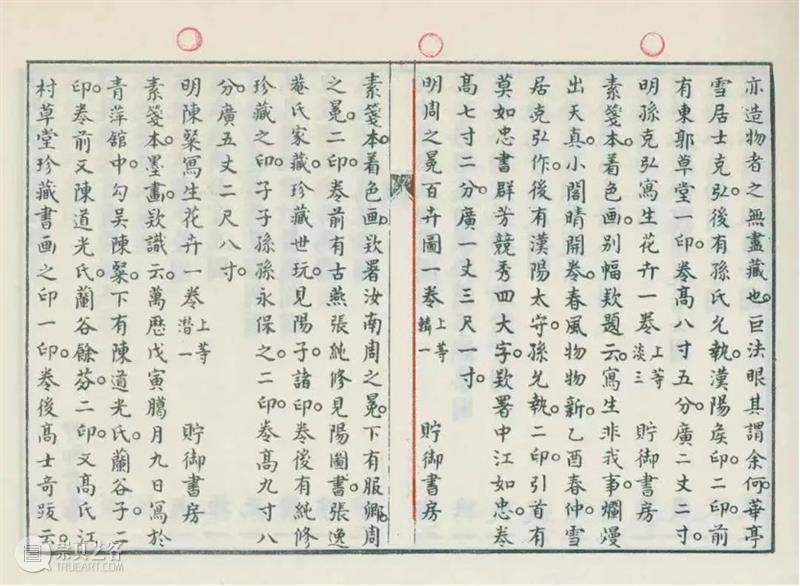 亦造物者之無盡藏也巨法眼其謂余何華亭
雪居士克弘後有孫氏允執漢陽矦印二印前
有東郭草堂一印卷高八寸五分廣二丈二寸
明孫克弘寫生花卉一卷 上等 淡三 貯御書房
素箋本着色畫別幅欵題云寫生非我事爛熳
出天真小閣晴開卷春風物物新乙酉春仲雪
居克弘作後有漢陽太守孫允執二印引首有
莫如忠書群芳競秀四大字欵署中江如忠卷
高七寸二分廣一丈三尺一寸
明周之冕百卉圖一卷 上等 轔一 貯御書房
素箋本着色畫欵署汝南周之冕下有服卿周
之冕二印卷前有古燕張純修見陽圖書張逸
菴氏家藏珍藏世玩見陽子諸印卷後有純修
珍藏之印子子孫孫永保之二印卷高九寸八
分廣五丈二尺八寸
明陳粲寫生花卉一卷 上等 潛一 貯御書房
素箋本墨畫欵識云萬歷戊寅臈月九日寫於
青萍館中勾吳陳粲下有陳道光氏蘭谷子二
印卷前又陳道光氏蘭谷餘芬二印又高氏江
村草堂珍藏書画之印一印卷後高士奇跋云
崇真艺客
TRUEART.COM